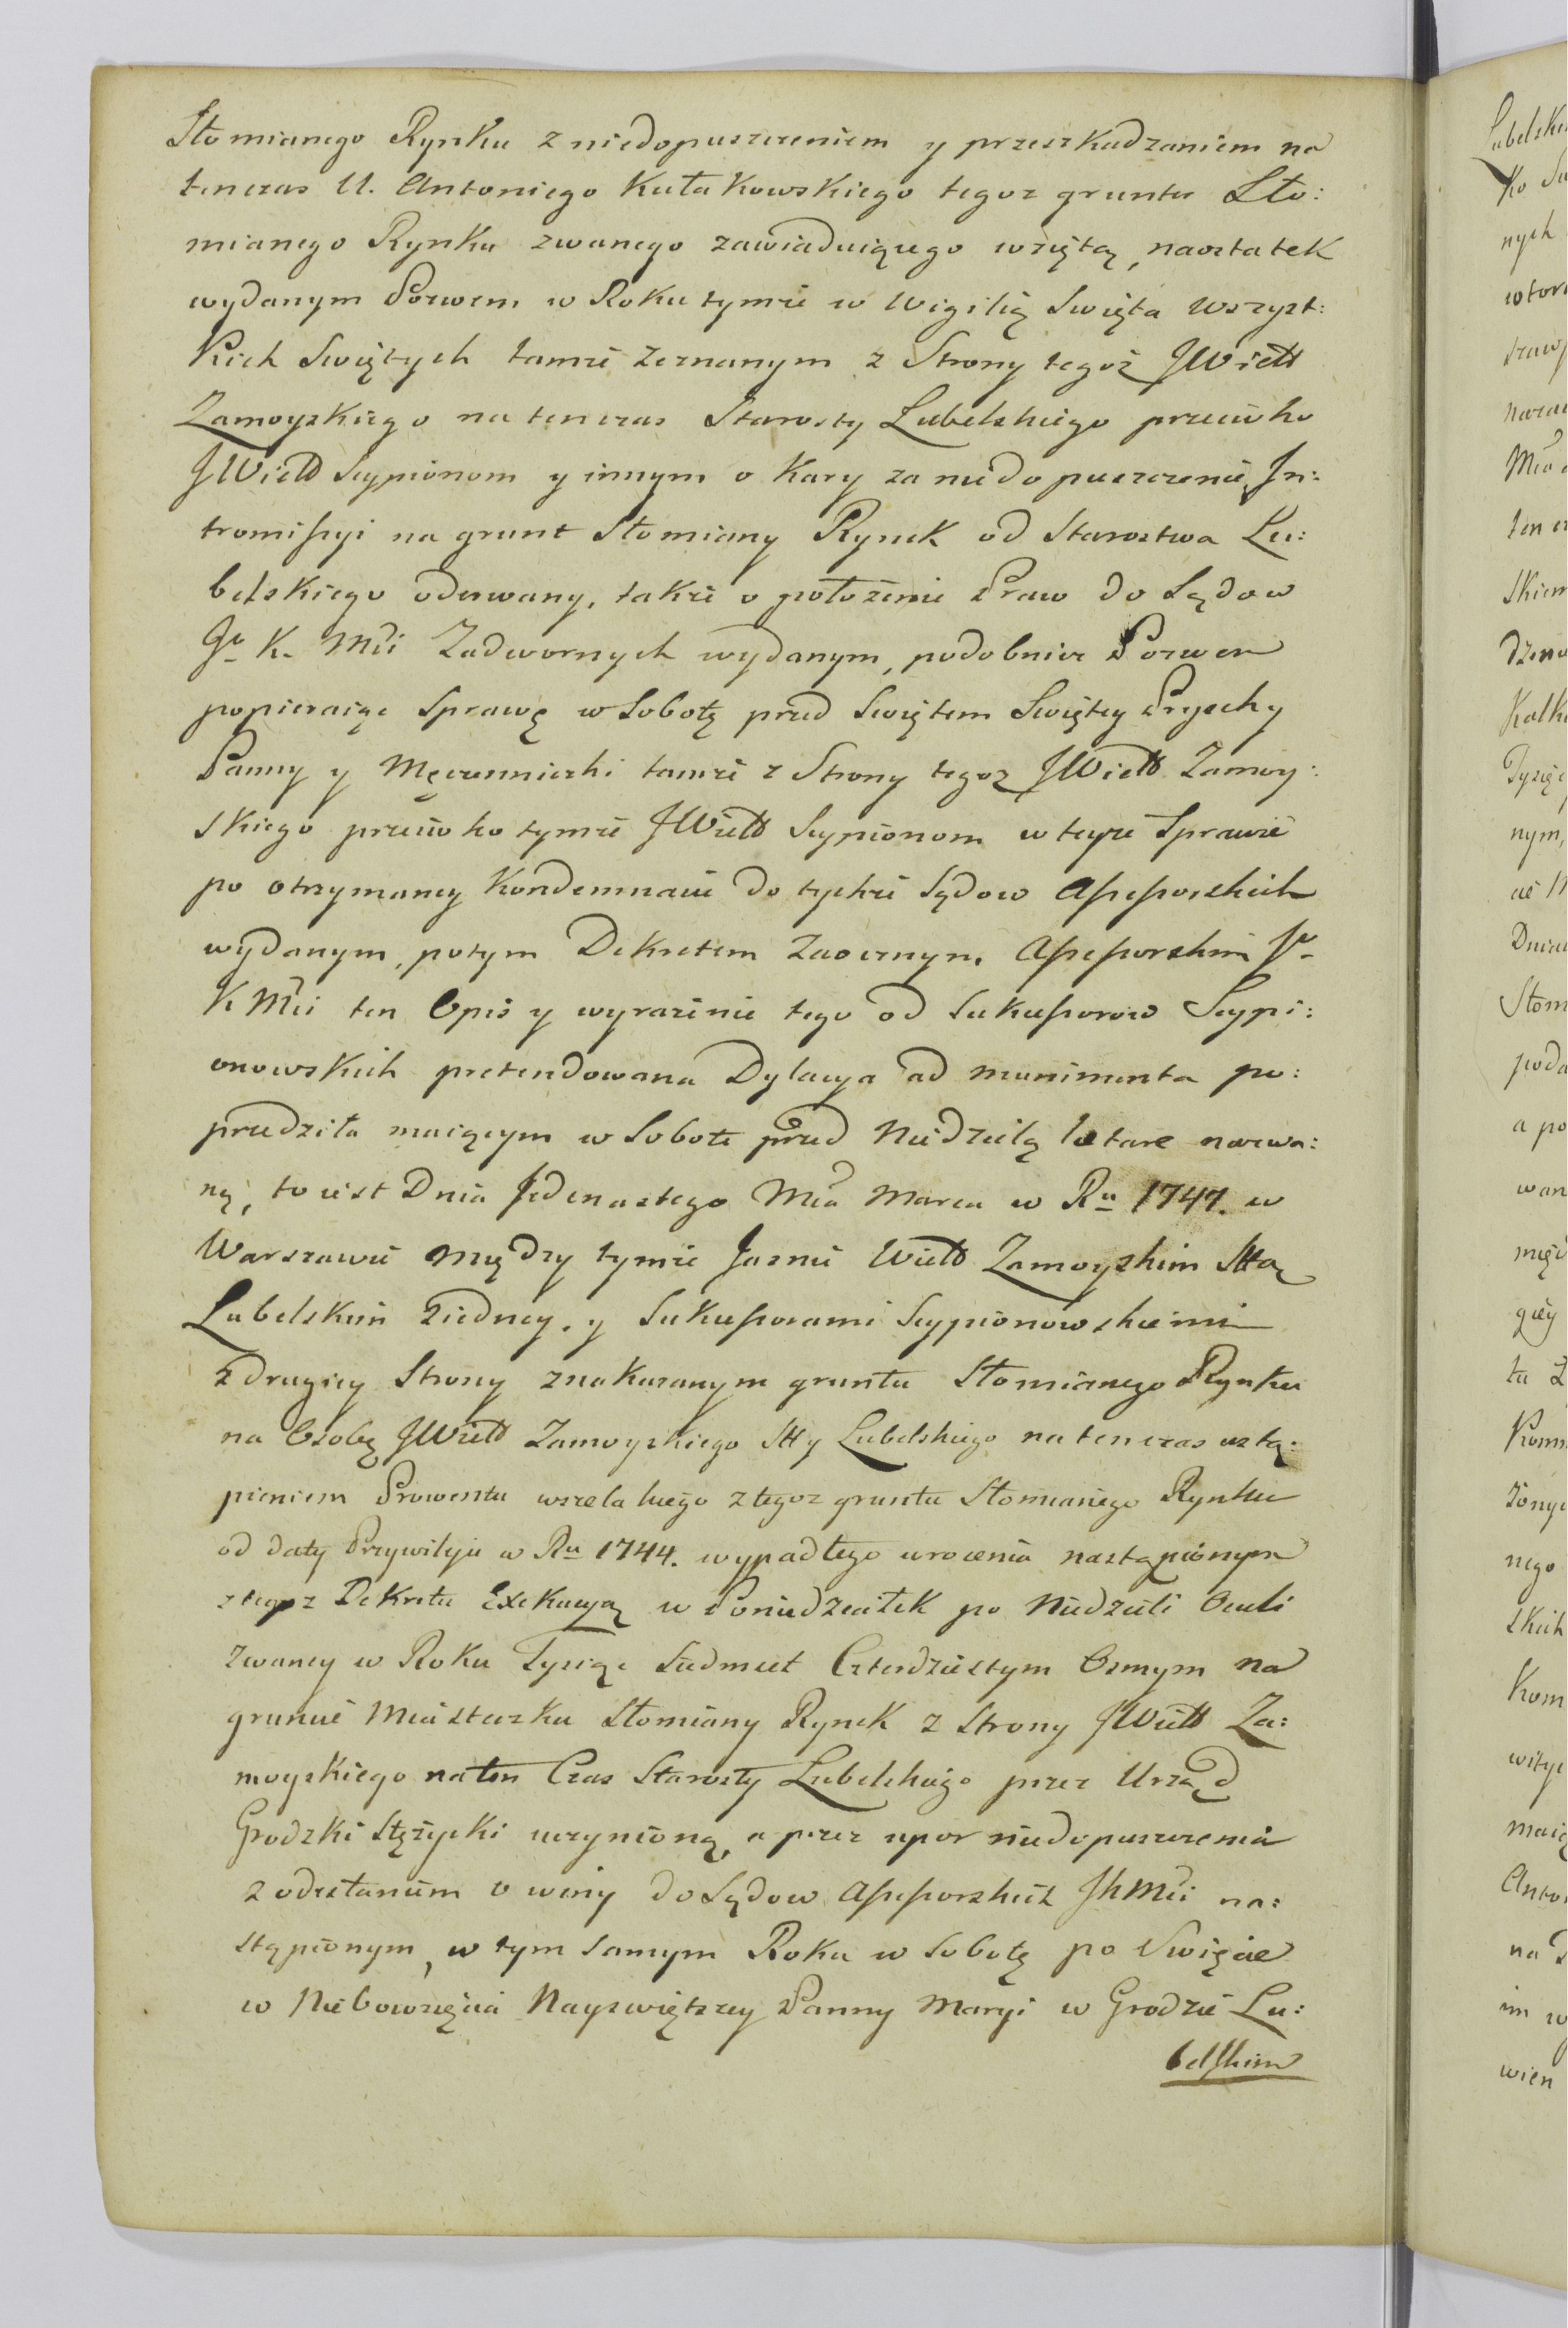 Słomianego Rynku z niedopuszczeniem y przeszkadzaniem na
tenczas U. Antoniego Kułakowskiego tegoz gruntu Sło:
mianego Rynku zwanego zawiaduiącego wziętą, naostatek
wydanym Pozwem w Roku tymże w Wigilią Swięta Wszyst:
kich Swiętych tamże zeznanym z Strony tegoż JWielt
Zamoyskiego na tenczas Starosty Lubelskiego przeciwko
JWielt Scypionom y innym o Kary za niedopuszczenie In:
tromissyi na grunt Słomiany Rynek od Starostwa Lu:
belskiego oderwany, także o położenie Praw do Sądow
Jo K. Mci Zadwornych wydanym, podobnież Pozwem
popieraiąc Sprawę w Sobotę przed Swiętem Swiętey Pryschy
Panny y Męczenniczki tamże z Strony tegoz JWielt Zamoy:
skiego przeciwko tymże JWielt Scypionom w teyże Sprawie
po otrzymaney Kondemnacie do tychże Sądow Assessorskich
wydanym, potym Dekretem Zaocznym Assessorskim Jo
K Mci ten Opis y wyrażenie tego od Sukcessorow Scypi:
onowskich pretendowana Dylacya ad munimenta po:
przedziła maiącym w Sobotę przed Niedzielą laetare nazwa:
ną, to iest Dnia Jedenastego Mca Marca w Ru 1747. w
Warszawie między tymże Jasnie Wielt Zamoyskim Sttą
Lubelskim ziedney, y Sukcessorami Scypionowskiemi
z drugiey Strony znakazanym gruntu Słomianego Rynku
na Osobę JWielt Zamoyskiego Stty Lubelskiego na tenczas ustą:
pieniem Prowentu wszelakiego z tegoz gruntu Słomianego Rynku
od daty Przywileju w Ru 1744. wypadłego wrocenia nastąpionym
z tegoz Dekretu Exekucyą w Poniedziałek po Niedzieli Oculi
zwaney w Roku Tysiąc Siedmset Czterdziestym Osmym na
gruncie Miasteczku Słomiany Rynek z Strony JWielt Za:
moyskiego na ten Czas Starosty Lubelskiego przez Urząd
Grodzki Stężycki uczynioną, a przez upor niedopuszczenia
z odesłaniem o winy do Sądow Assessorskich JKMci na:
stąpionym, w tym samym Roku w Sobotę po Swięcie
w Niebowzięcia Nayswiętszey Panny Maryi w Grodzie Lu:
belskim